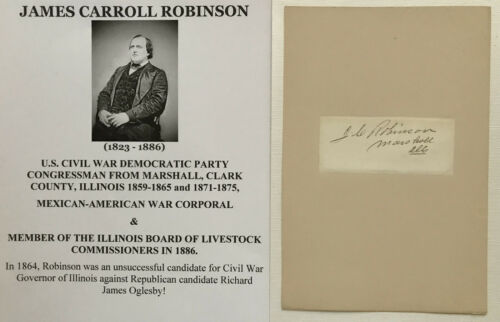 JAMES CARROLL ROBINSON
(1823 - 1886)
U.S. CIVIL WAR DEMOCRATIC PARTY
CONGRESSMAN FROM MARSHALL, CLARK
COUNTY, ILLINOIS 1859-1865 and 1871-1875,
MEXICAN-AMERICAN WAR CORPORAL
&
MEMBER OF THE ILLINOIS BOARD OF LIVESTOCK
COMMISSIONERS IN 1886.
In 1864, Robinson was an unsuccessful candidate for Civil War
Governor of Illinois against Republican candidate Richard
James Oglesby!
J C Robinson
Marshall
Ills